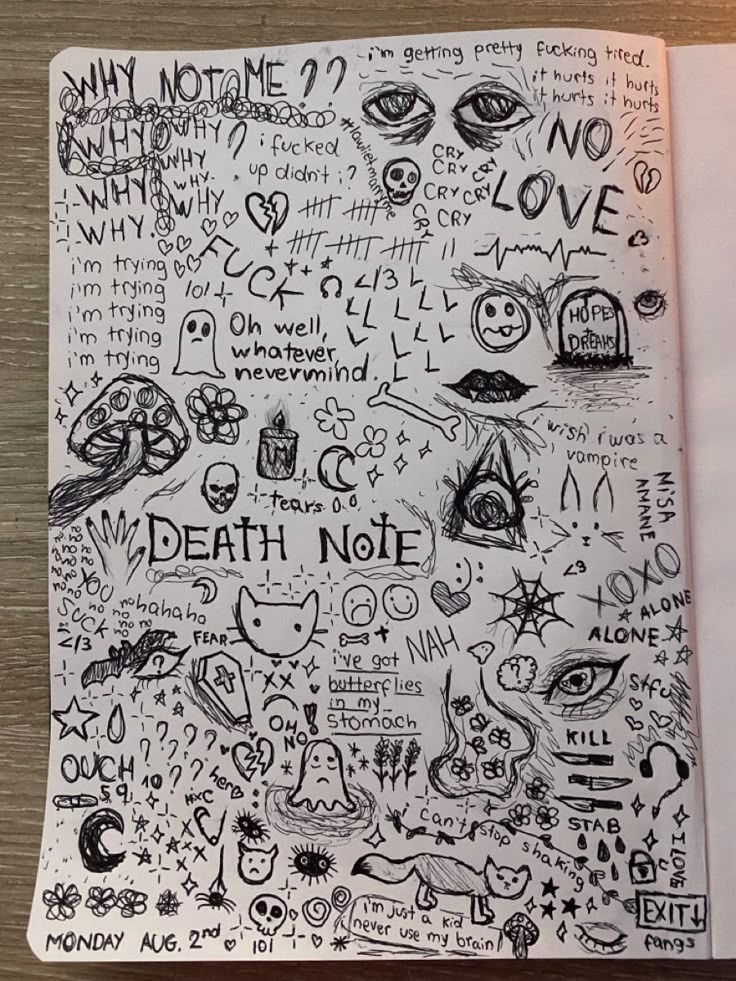 WHY NOT ME ??
i'm getting pretty fucking tired.
it hurts it hurts
it hurts it hurts
WHY
WHY ?
WHY
WHY.
WHY
WHY
WHY.
i fucked
up didn't i?
CRY
CRY CRY
CRY CRY
CRY CRY
NO
LOVE
<3
i'm trying
i'm trying
i'm trying
i'm trying
i'm trying
FUCK
101
</3
Oh well,
whatever,
nevermind.
L L L L L L L L L L L L
HOPES
+
DREAMS
wish i was a
vampire
MISA
AMANE
tears
DEATH NOTE
no no no no no no no no no no no no
YOU
SUCK
hahaha
</3
FEAR
<3
XOXO
ALONE
ALONE
NAH
i've got
butterflies
in my
stomach
XX
OH
NO!
stfu
KILL
STAB
OUCH
? ? ? ? ? ?
10
59
hero
HXC
XX
i can't stop shaking
I LOVE U
EXIT↓
fangs
i'm just a kid
never use my brain!
MONDAY AUG. 2nd
101